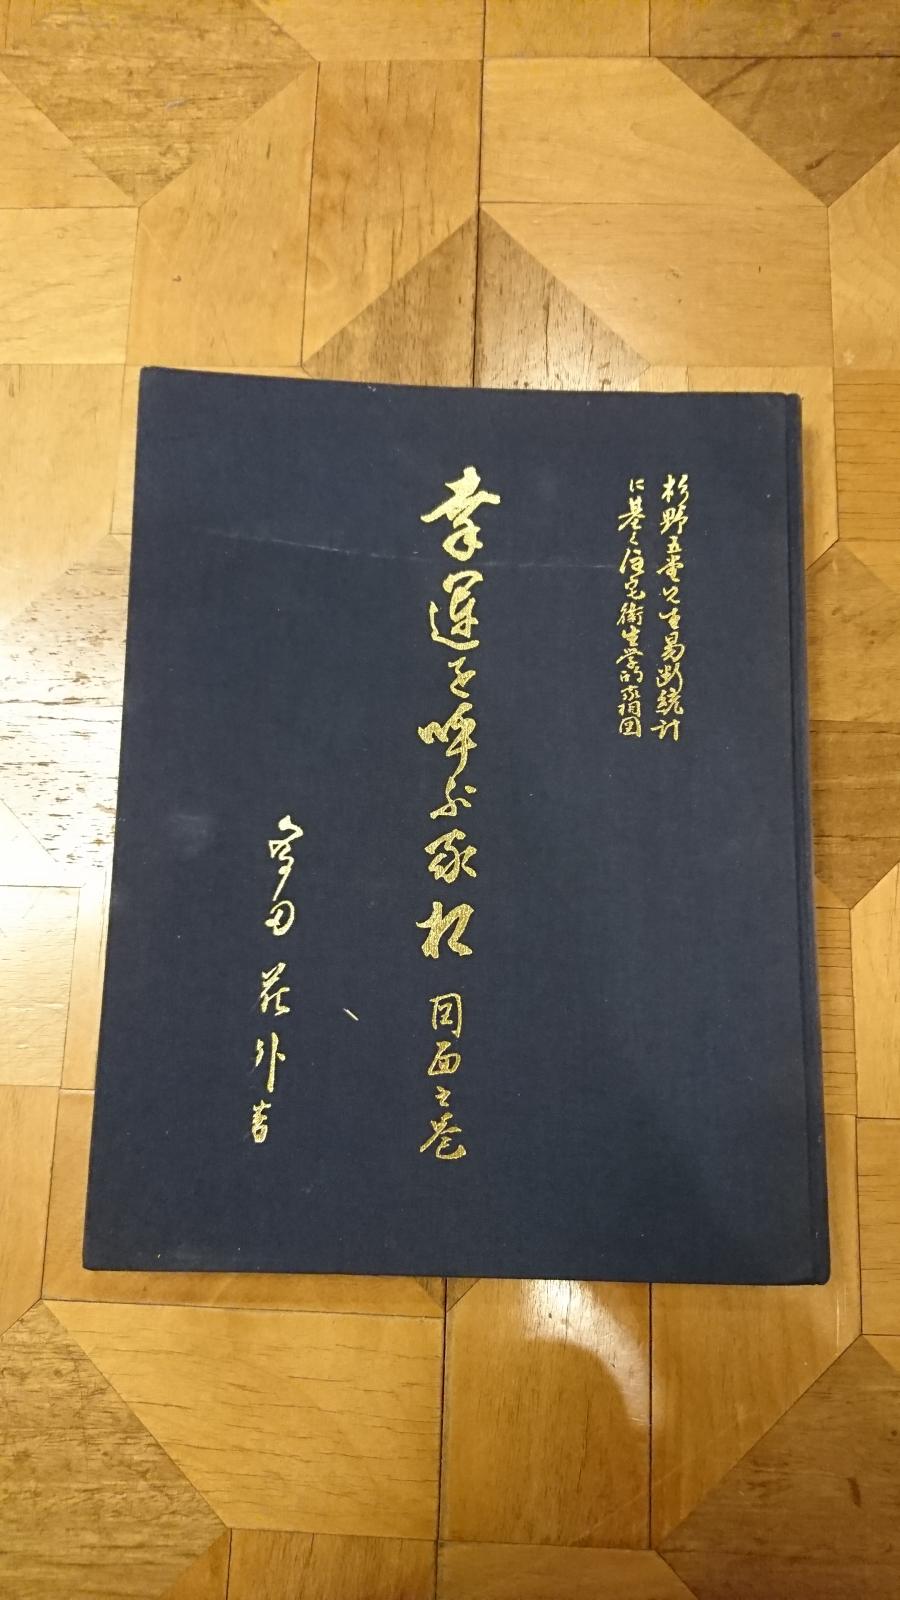 杉野五堂先生易断統計
に基く住宅衛生学的家相図
幸運を呼ぶ家相 図面之巻
田 外書